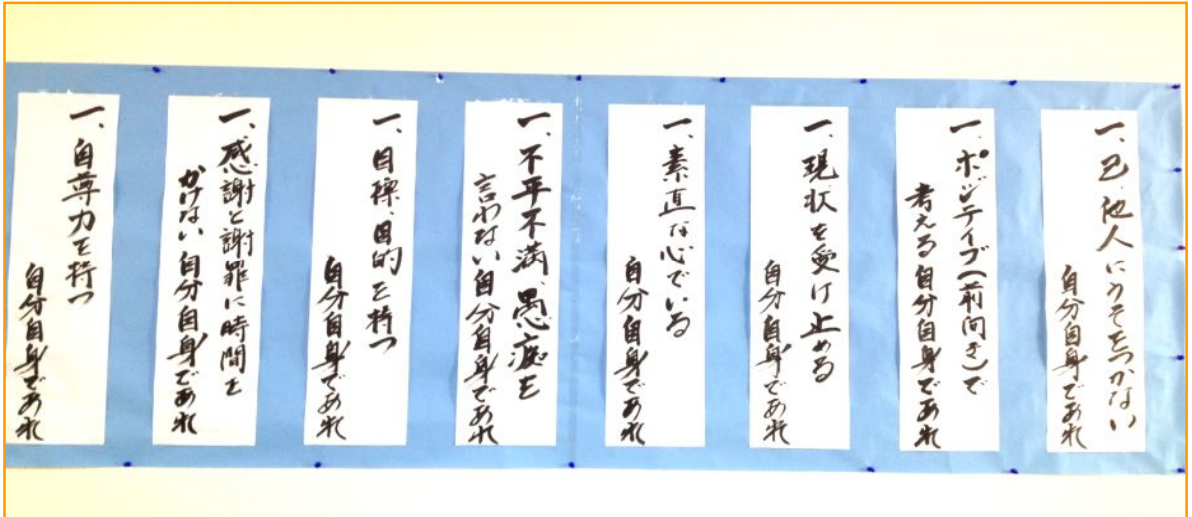 一、己、他人にうそをつかない
自分自身であれ
一、ポジティブ(前向き)で
考える自分自身であれ
一、現状を受け止める
自分自身であれ
一、素直な心でいる
自分自身であれ
一、不平不満、愚痴を
言わない自分自身であれ
一、目標、目的を持つ
自分自身であれ
一、感謝と謝罪に時間を
かけない自分自身であれ
一、自尊力を持つ
自分自身であれ